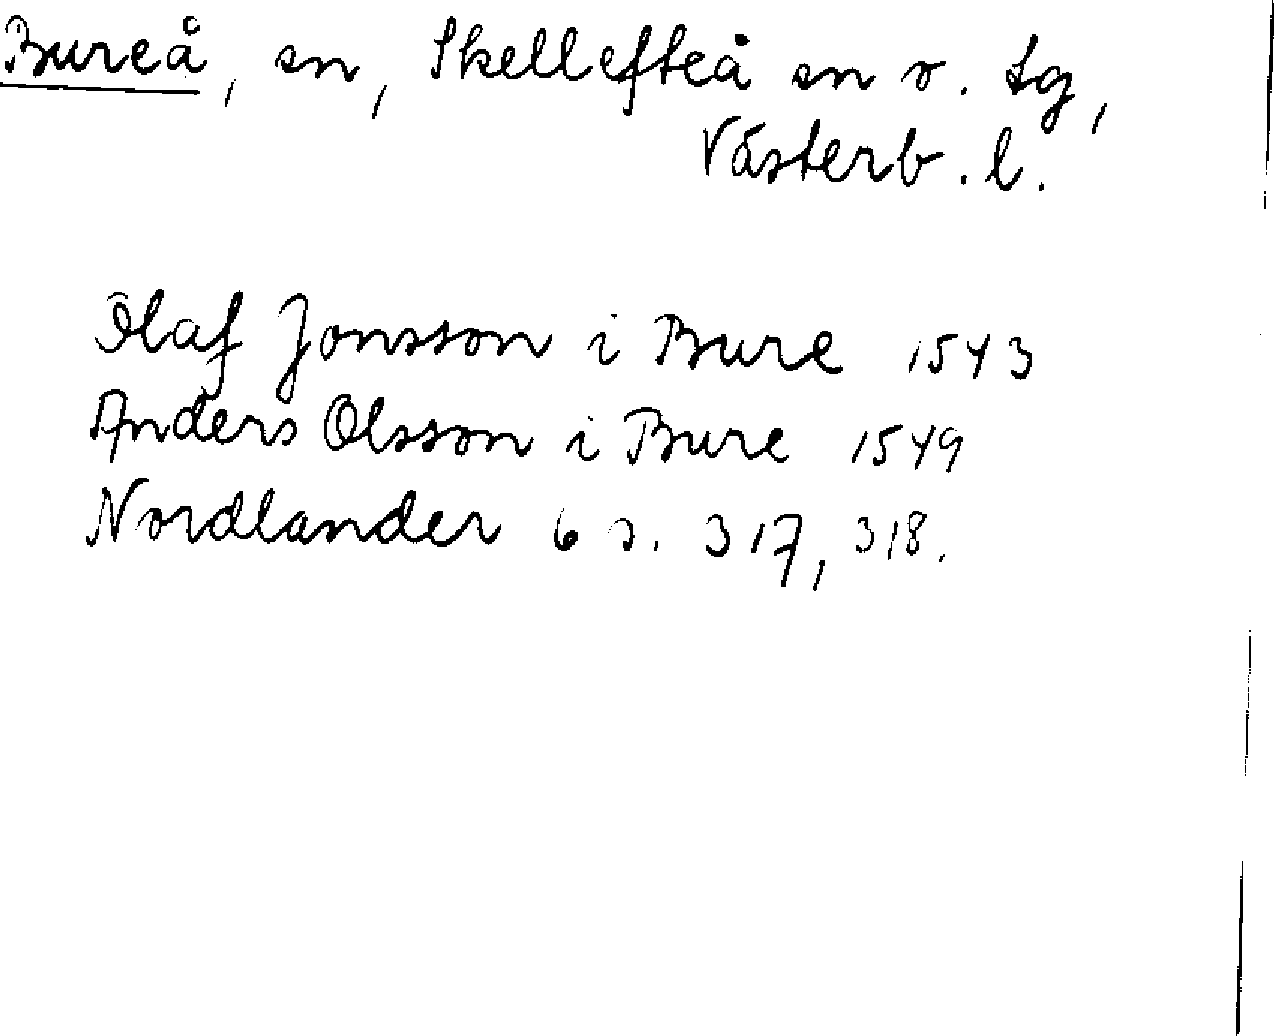 Bureå, sn, Skellefteå sn o. tg,
Västerb. l.
Olaf Jonsson i Bure 1543
Anders Olsson i Bure 1549
Nordlander 6 s. 317, 318.